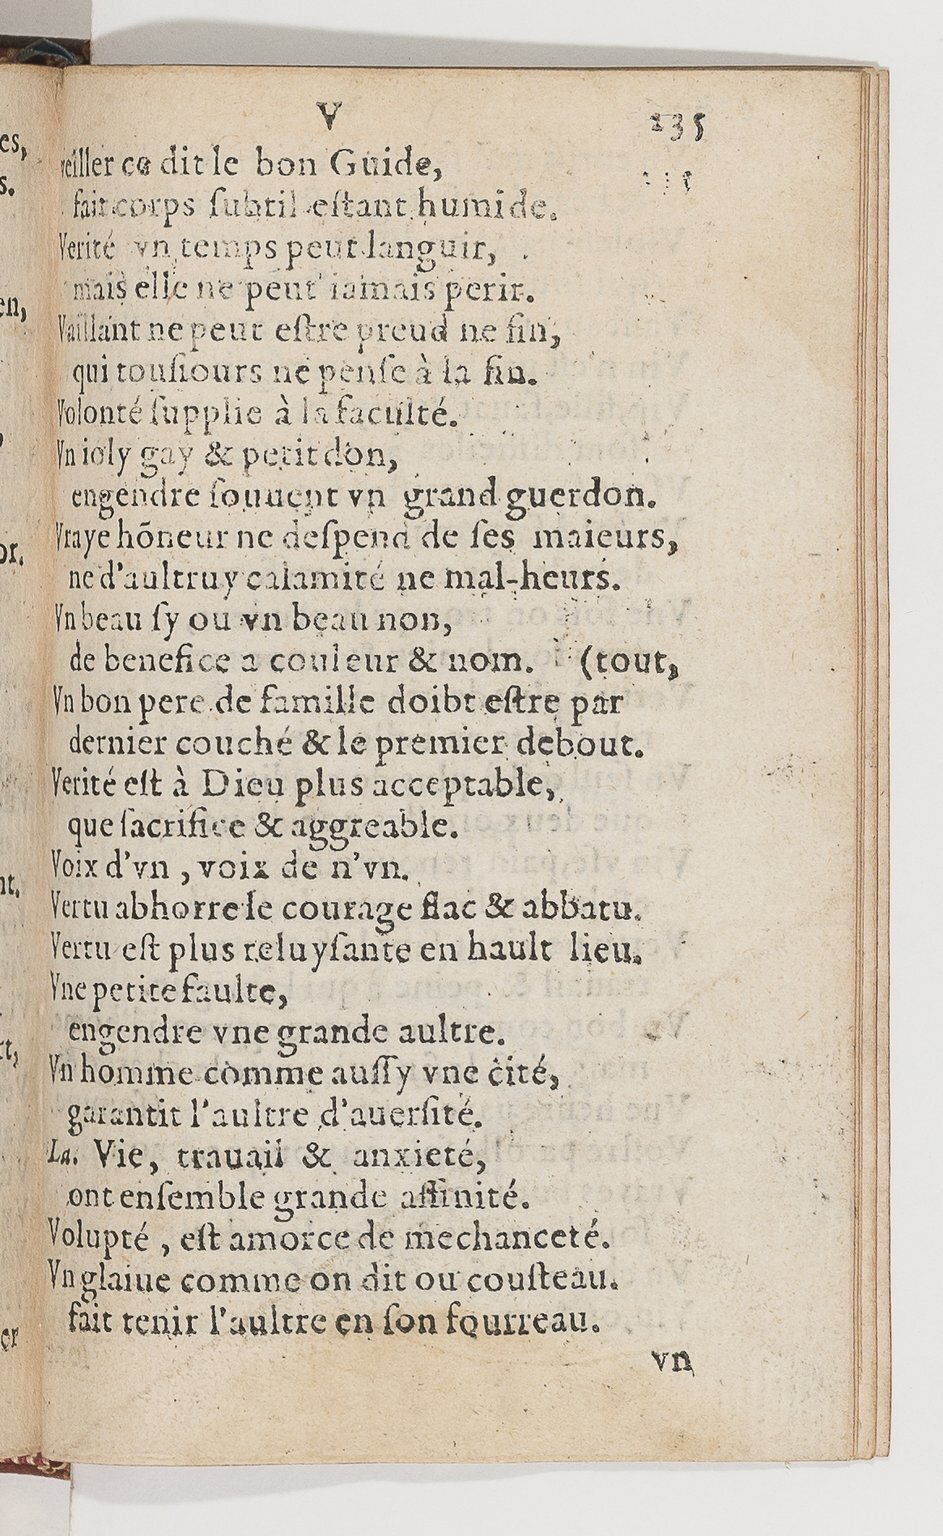 V 135
veiller ce dit le bon Guide,
fait corps ſubtil eſtant humide.
Verité vn temps peut languir,
mais elle ne peut iamais perir.
Vaillant ne peut eſtre preud ne fin,
qui touſiours ne penſe à la fin.
Volonté ſupplie à la faculté.
Vn ioly gay & petit dòn,
engendre ſouuent vn grand guerdon.
Vraye hõneur ne deſpend de ſes maieurs,
ne d'aultruy calamité ne mal-heurs.
Vn beau ſy ou vn beau non,
de benefice a couleur & nom. (tout,
Vn bon pere de famille doibt eſtre par
dernier couché & le premier debout.
Verité eſt à Dieu plus acceptable,
que ſacrifice & aggreable.
Voix d'vn , voix de n'vn.
Vertu abhorre le courage flac & abbatu.
Vertu eſt plus reluyſante en hault lieu.
Vne petite faulte,
engendre vne grande aultre.
Vn homme comme auſſy vne cité,
garantit l'aultre d'auerſité.
La. Vie, trauail & anxieté,
ont enſemble grande affinité.
Volupté , eſt amorce de mechanceté.
Vn glaiue comme on dit ou couſteau.
fait tenir l'aultre en ſon fourreau.
vn